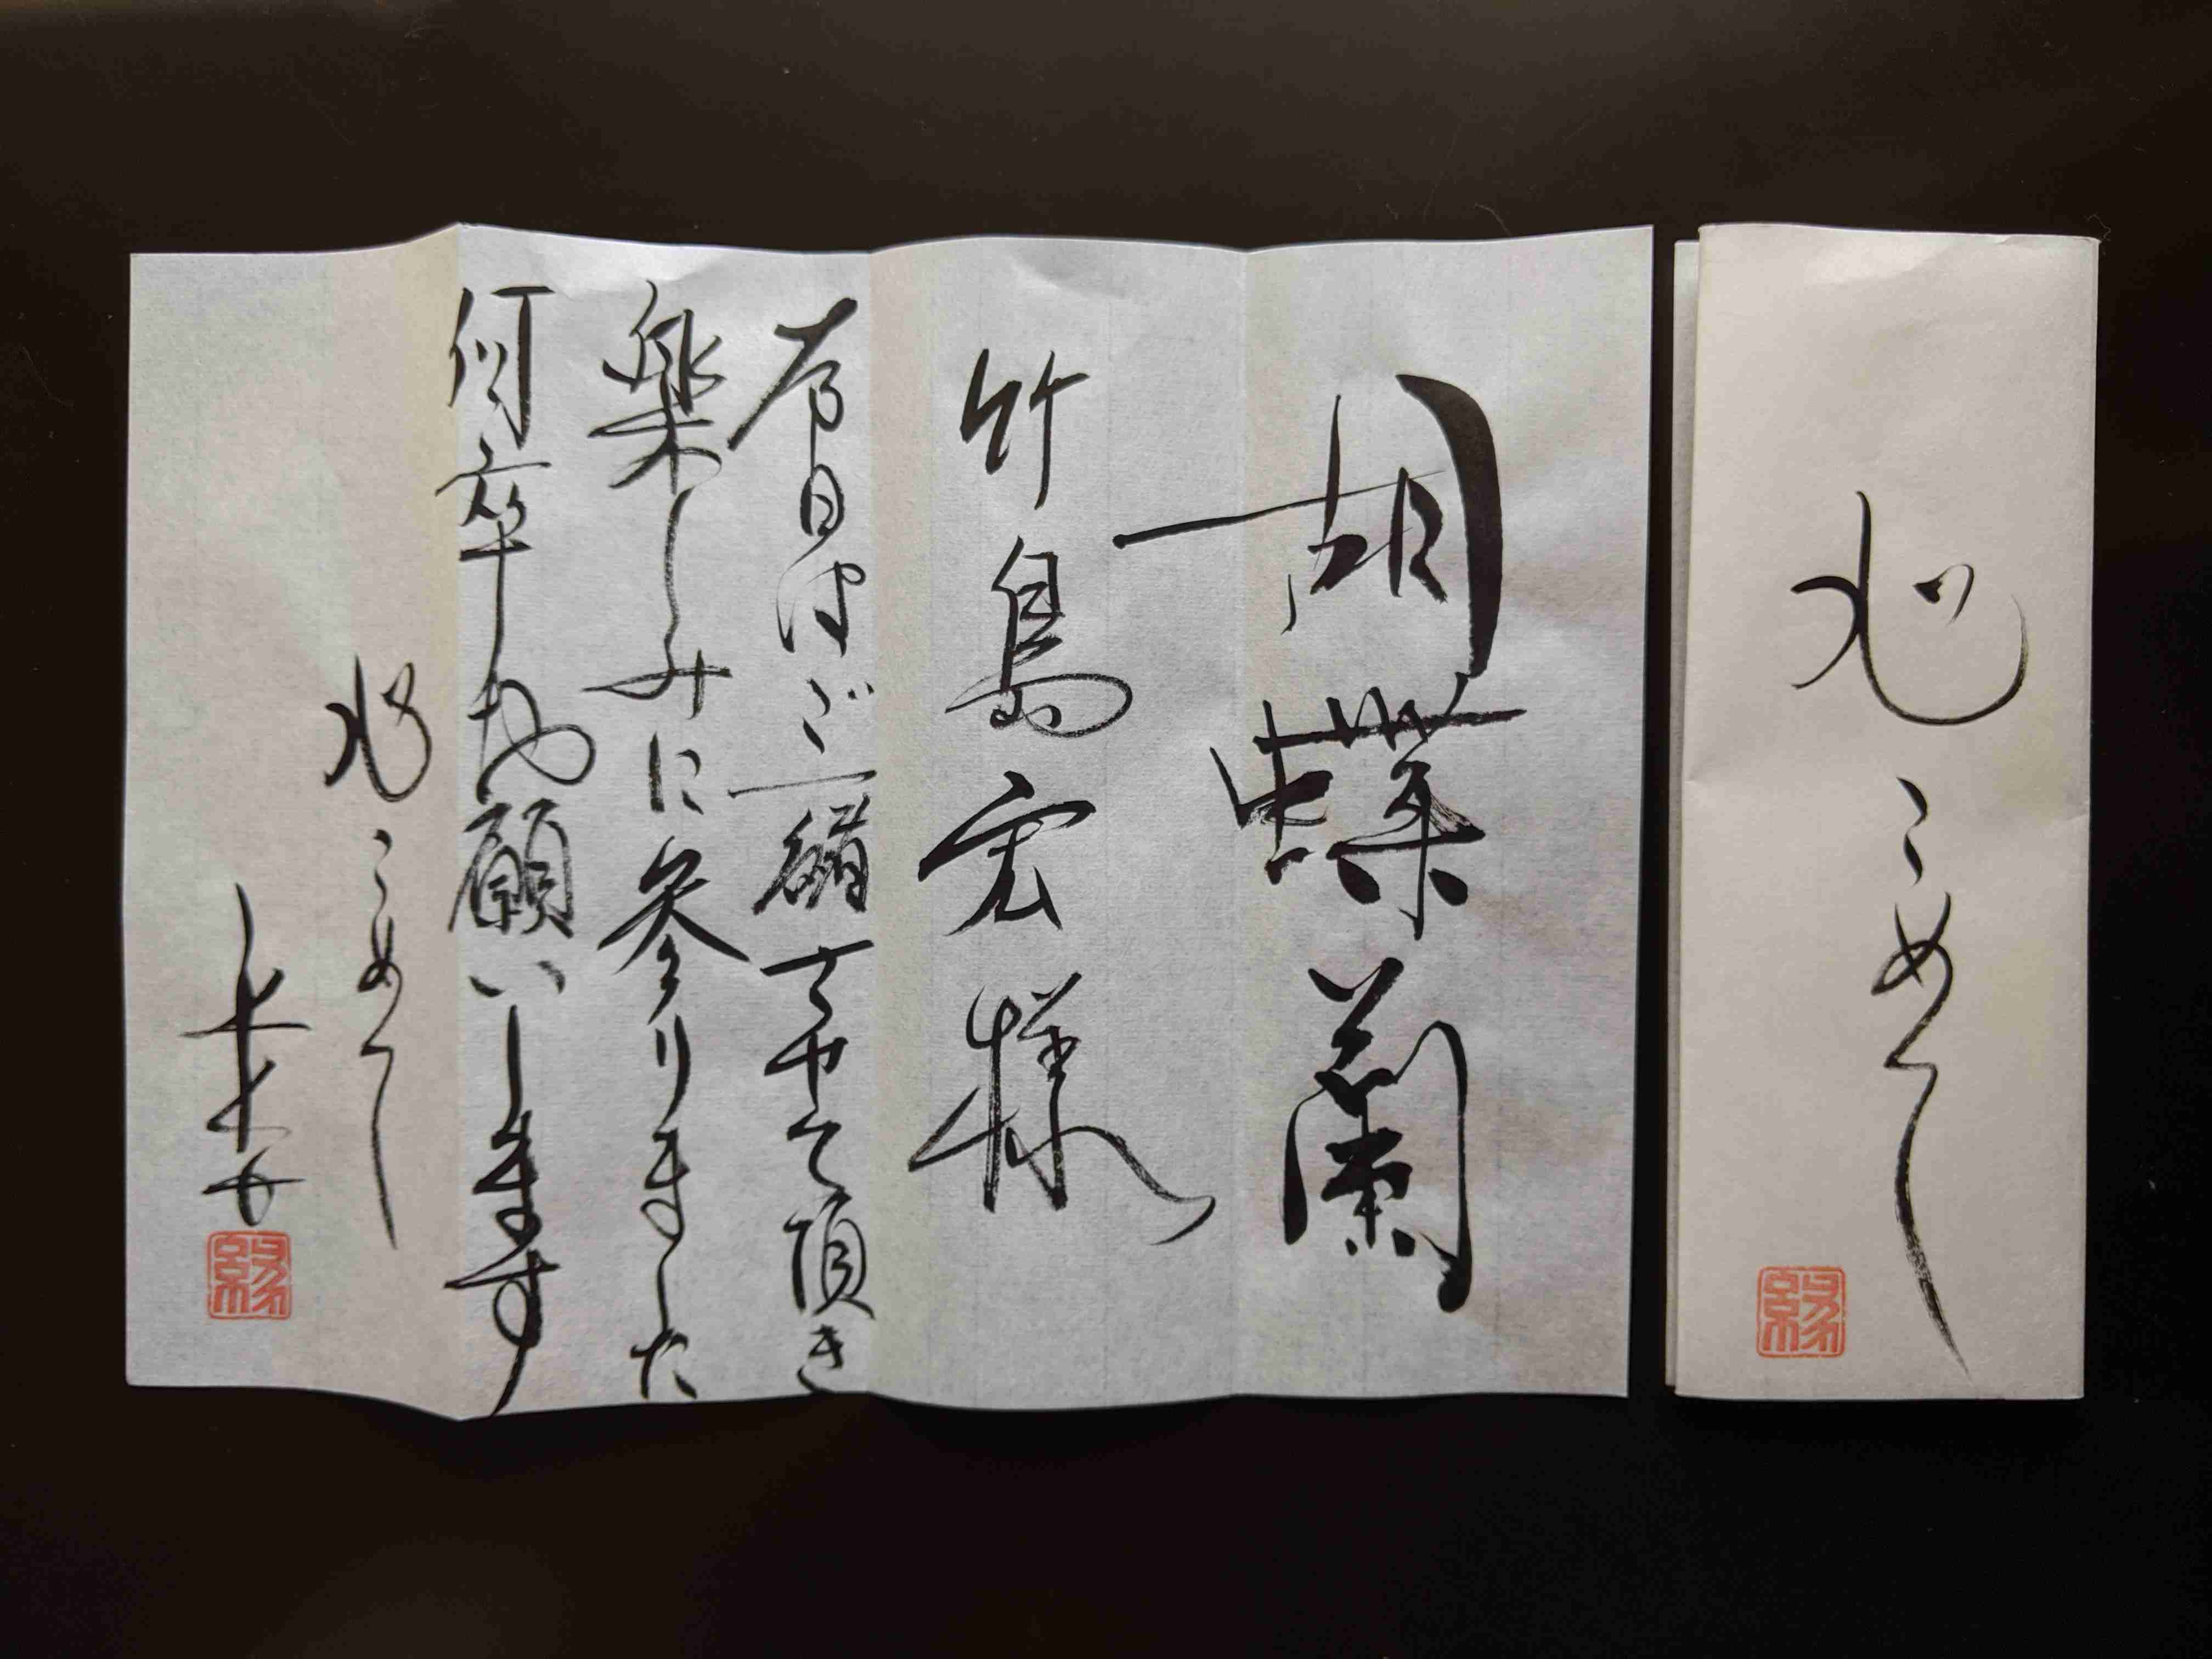 心こめて
縁
胡蝶蘭
竹島宏様
本日はご一緒させて頂き
楽しみに参りました
何卒お願いします
心こめて
縁